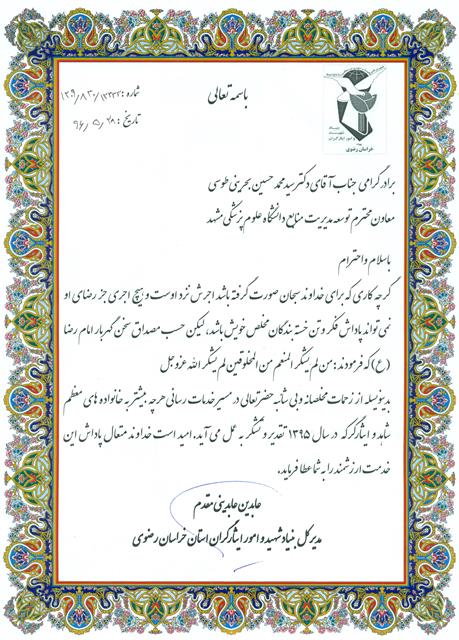 باسمه تعالی
شماره: ۱۳۹/۸۳۰/۱۳۳۴۲
تاریخ: ۹۶/۵/۲۸
بنیاد
شهید
و امور ایثارگران
خراسان رضوی
برادر گرامی جناب آقای دکتر سید محمد حسین بحرینی طوسی
معاون محترم توسعه مدیریت منابع دانشگاه علوم پزشکی مشهد
با سلام و احترام
گرچه کاری که برای خداوند سبحان صورت گرفته باشد اجرش نزد اوست و هیچ اجری جز رضای او
نمی تواند پاداش فکر و تن خسته بندگان مخلص خویش باشد، لیکن حسب مصداق سخن گهربار امام رضا
(ع) که فرمودند: من لم یشکر المنعم من المخلوقین لم یشکر الله عزوجل
بدینوسیله از زحمات مخلصانه و بی شائبه حضرتعالی در مسیر خدمات رسانی هرچه بیشتر به خانواده های معظم
شاهد و ایثارگر که در سال ۱۳۹۵ تقدیر و تشکر به عمل می آید. امید است خداوند متعال پاداش این
خدمت ارزشمند را به شما عطا فرماید.
عابدین عابدینی مقدم
مدیرکل بنیاد شهید و امور ایثارگران استان خراسان رضوی